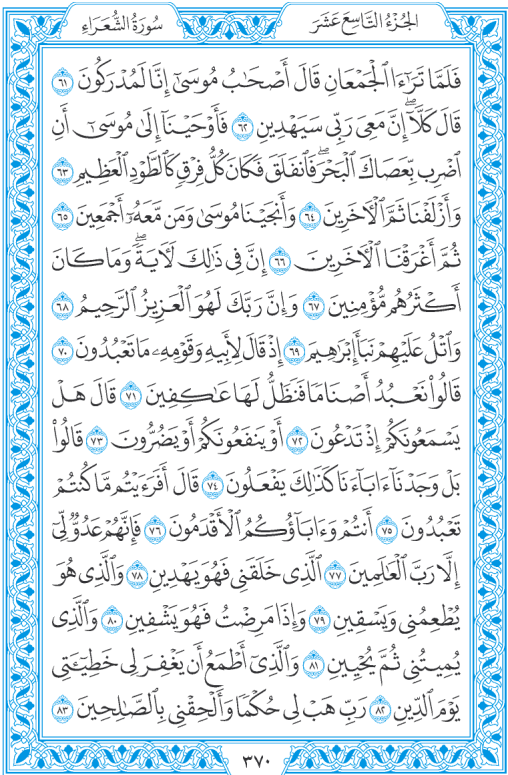 الجُزْءُ التَّاسِعَ عَشَرَ
سُورَةُ الشُّعَرَاءِ
فَلَمَّا تَرَٰٓءَا ٱلْجَمْعَانِ قَالَ أَصْحَٰبُ مُوسَىٰٓ إِنَّا لَمُدْرَكُونَ ٦١
قَالَ كَلَّآ ۖ إِنَّ مَعِىَ رَبِّى سَيَهْدِينِ ٦٢ فَأَوْحَيْنَآ إِلَىٰ مُوسَىٰٓ أَنِ
ٱضْرِب بِّعَصَاكَ ٱلْبَحْرَ ۖ فَٱنفَلَقَ فَكَانَ كُلُّ فِرْقٍ كَٱلطَّوْدِ ٱلْعَظِيمِ ٦٣
وَأَزْلَفْنَا ثَمَّ ٱلْءَاخَرِينَ ٦٤ وَأَنجَيْنَا مُوسَىٰ وَمَن مَّعَهُۥٓ أَجْمَعِينَ ٦٥
ثُمَّ أَغْرَقْنَا ٱلْءَاخَرِينَ ٦٦ إِنَّ فِى ذَٰلِكَ لَءَايَةً ۖ وَمَا كَانَ
أَكْثَرُهُم مُّؤْمِنِينَ ٦٧ وَإِنَّ رَبَّكَ لَهُوَ ٱلْعَزِيزُ ٱلرَّحِيمُ ٦٨
وَٱتْلُ عَلَيْهِمْ نَبَأَ إِبْرَٰهِيمَ ٦٩ إِذْ قَالَ لِأَبِيهِ وَقَوْمِهِۦ مَا تَعْبُدُونَ ٧٠
قَالُوا۟ نَعْبُدُ أَصْنَامًا فَنَظَلُّ لَهَا عَٰكِفِينَ ٧١ قَالَ هَلْ
يَسْمَعُونَكُمْ إِذْ تَدْعُونَ ٧٢ أَوْ يَنفَعُونَكُمْ أَوْ يَضُرُّونَ ٧٣ قَالُوا۟
بَلْ وَجَدْنَآ ءَابَآءَنَا كَذَٰلِكَ يَفْعَلُونَ ٧٤ قَالَ أَفَرَءَيْتُم مَّا كُنتُمْ
تَعْبُدُونَ ٧٥ أَنتُمْ وَءَابَآؤُكُمُ ٱلْأَقْدَمُونَ ٧٦ فَإِنَّهُمْ عَدُوٌّ لِّىٓ
إِلَّا رَبَّ ٱلْعَٰلَمِينَ ٧٧ ٱلَّذِى خَلَقَنِى فَهُوَ يَهْدِينِ ٧٨ وَٱلَّذِى هُوَ
يُطْعِمُنِى وَيَسْقِينِ ٧٩ وَإِذَا مَرِضْتُ فَهُوَ يَشْفِينِ ٨٠ وَٱلَّذِى
يُمِيتُنِى ثُمَّ يُحْيِينِ ٨١ وَٱلَّذِىٓ أَطْمَعُ أَن يَغْفِرَ لِى خَطِيٓـَٔتِى
يَوْمَ ٱلدِّينِ ٨٢ رَبِّ هَبْ لِى حُكْمًا وَأَلْحِقْنِى بِٱلصَّٰلِحِينَ ٨٣
٣٧٠